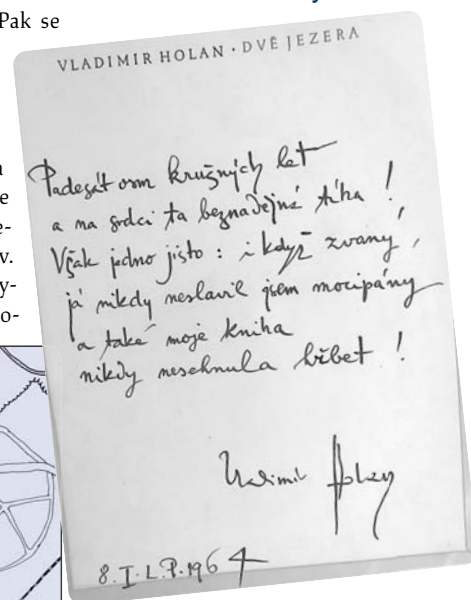 Pak se
e
e-
v.
y-
o-
VLADIMÍR HOLAN · DVĚ JEZERA
Padesát osm krušných let
a na srdci ta beznadějná tíha !
Však jedno jisto : i když zvaný,
já nikdy neslavil jsem mocipány
a také moje kniha
nikdy nesehnula hřbet !
Vladimír Holan
8. I. L.P. 1964